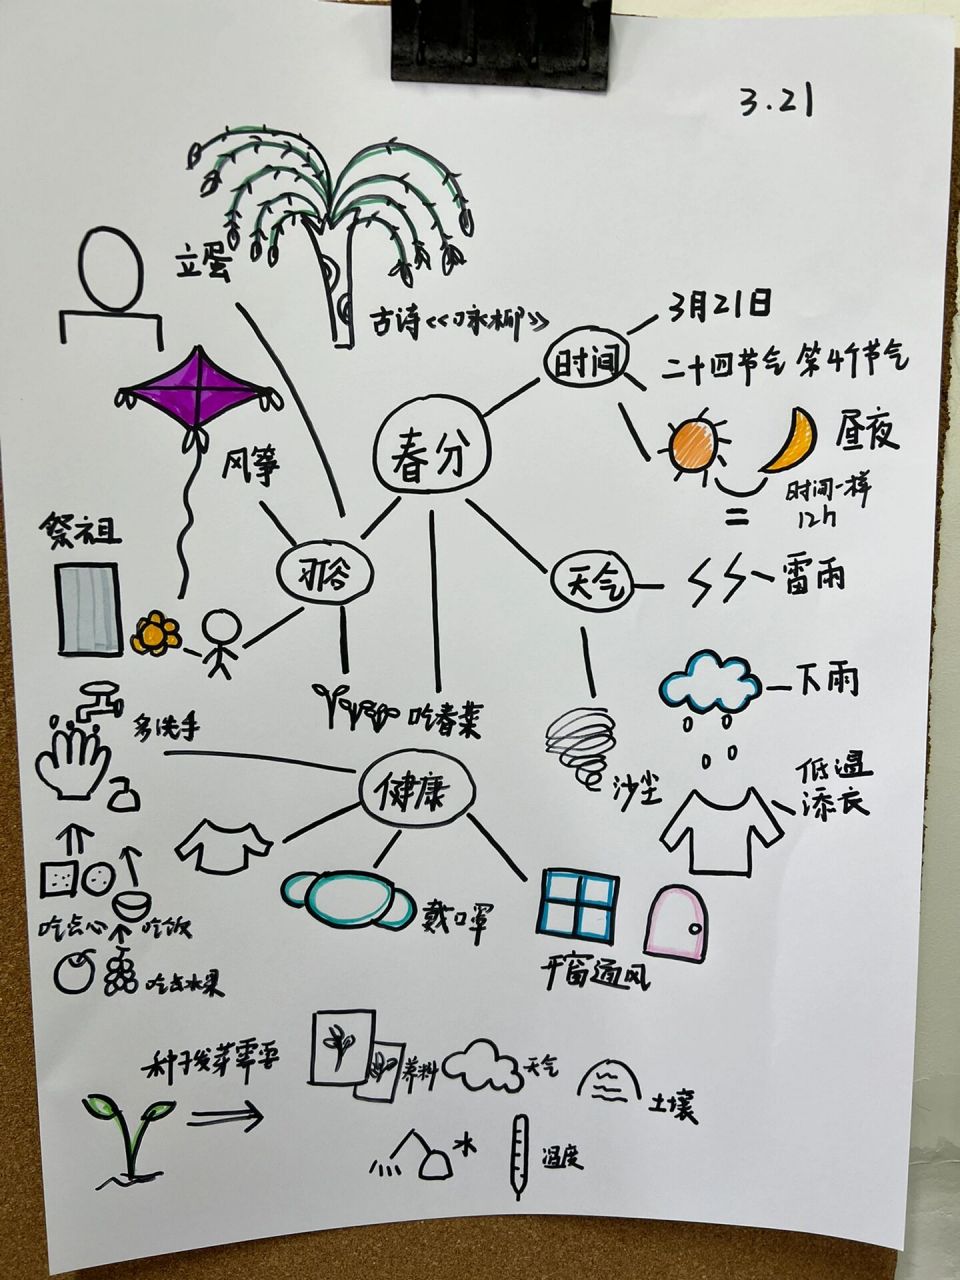 3.21
立蛋
古诗《咏柳》
时间
3月21日
二十四节气 第4个节气
昼夜
时间一样
12h
=
春分
风筝
祭祖
习俗
天气
雷雨
下雨
吃春菜
多洗手
健康
沙尘
低温
添衣
戴口罩
开窗通风
吃点心
吃饭
吃点水果
种子发芽需要
养料
天气
土壤
水
温度